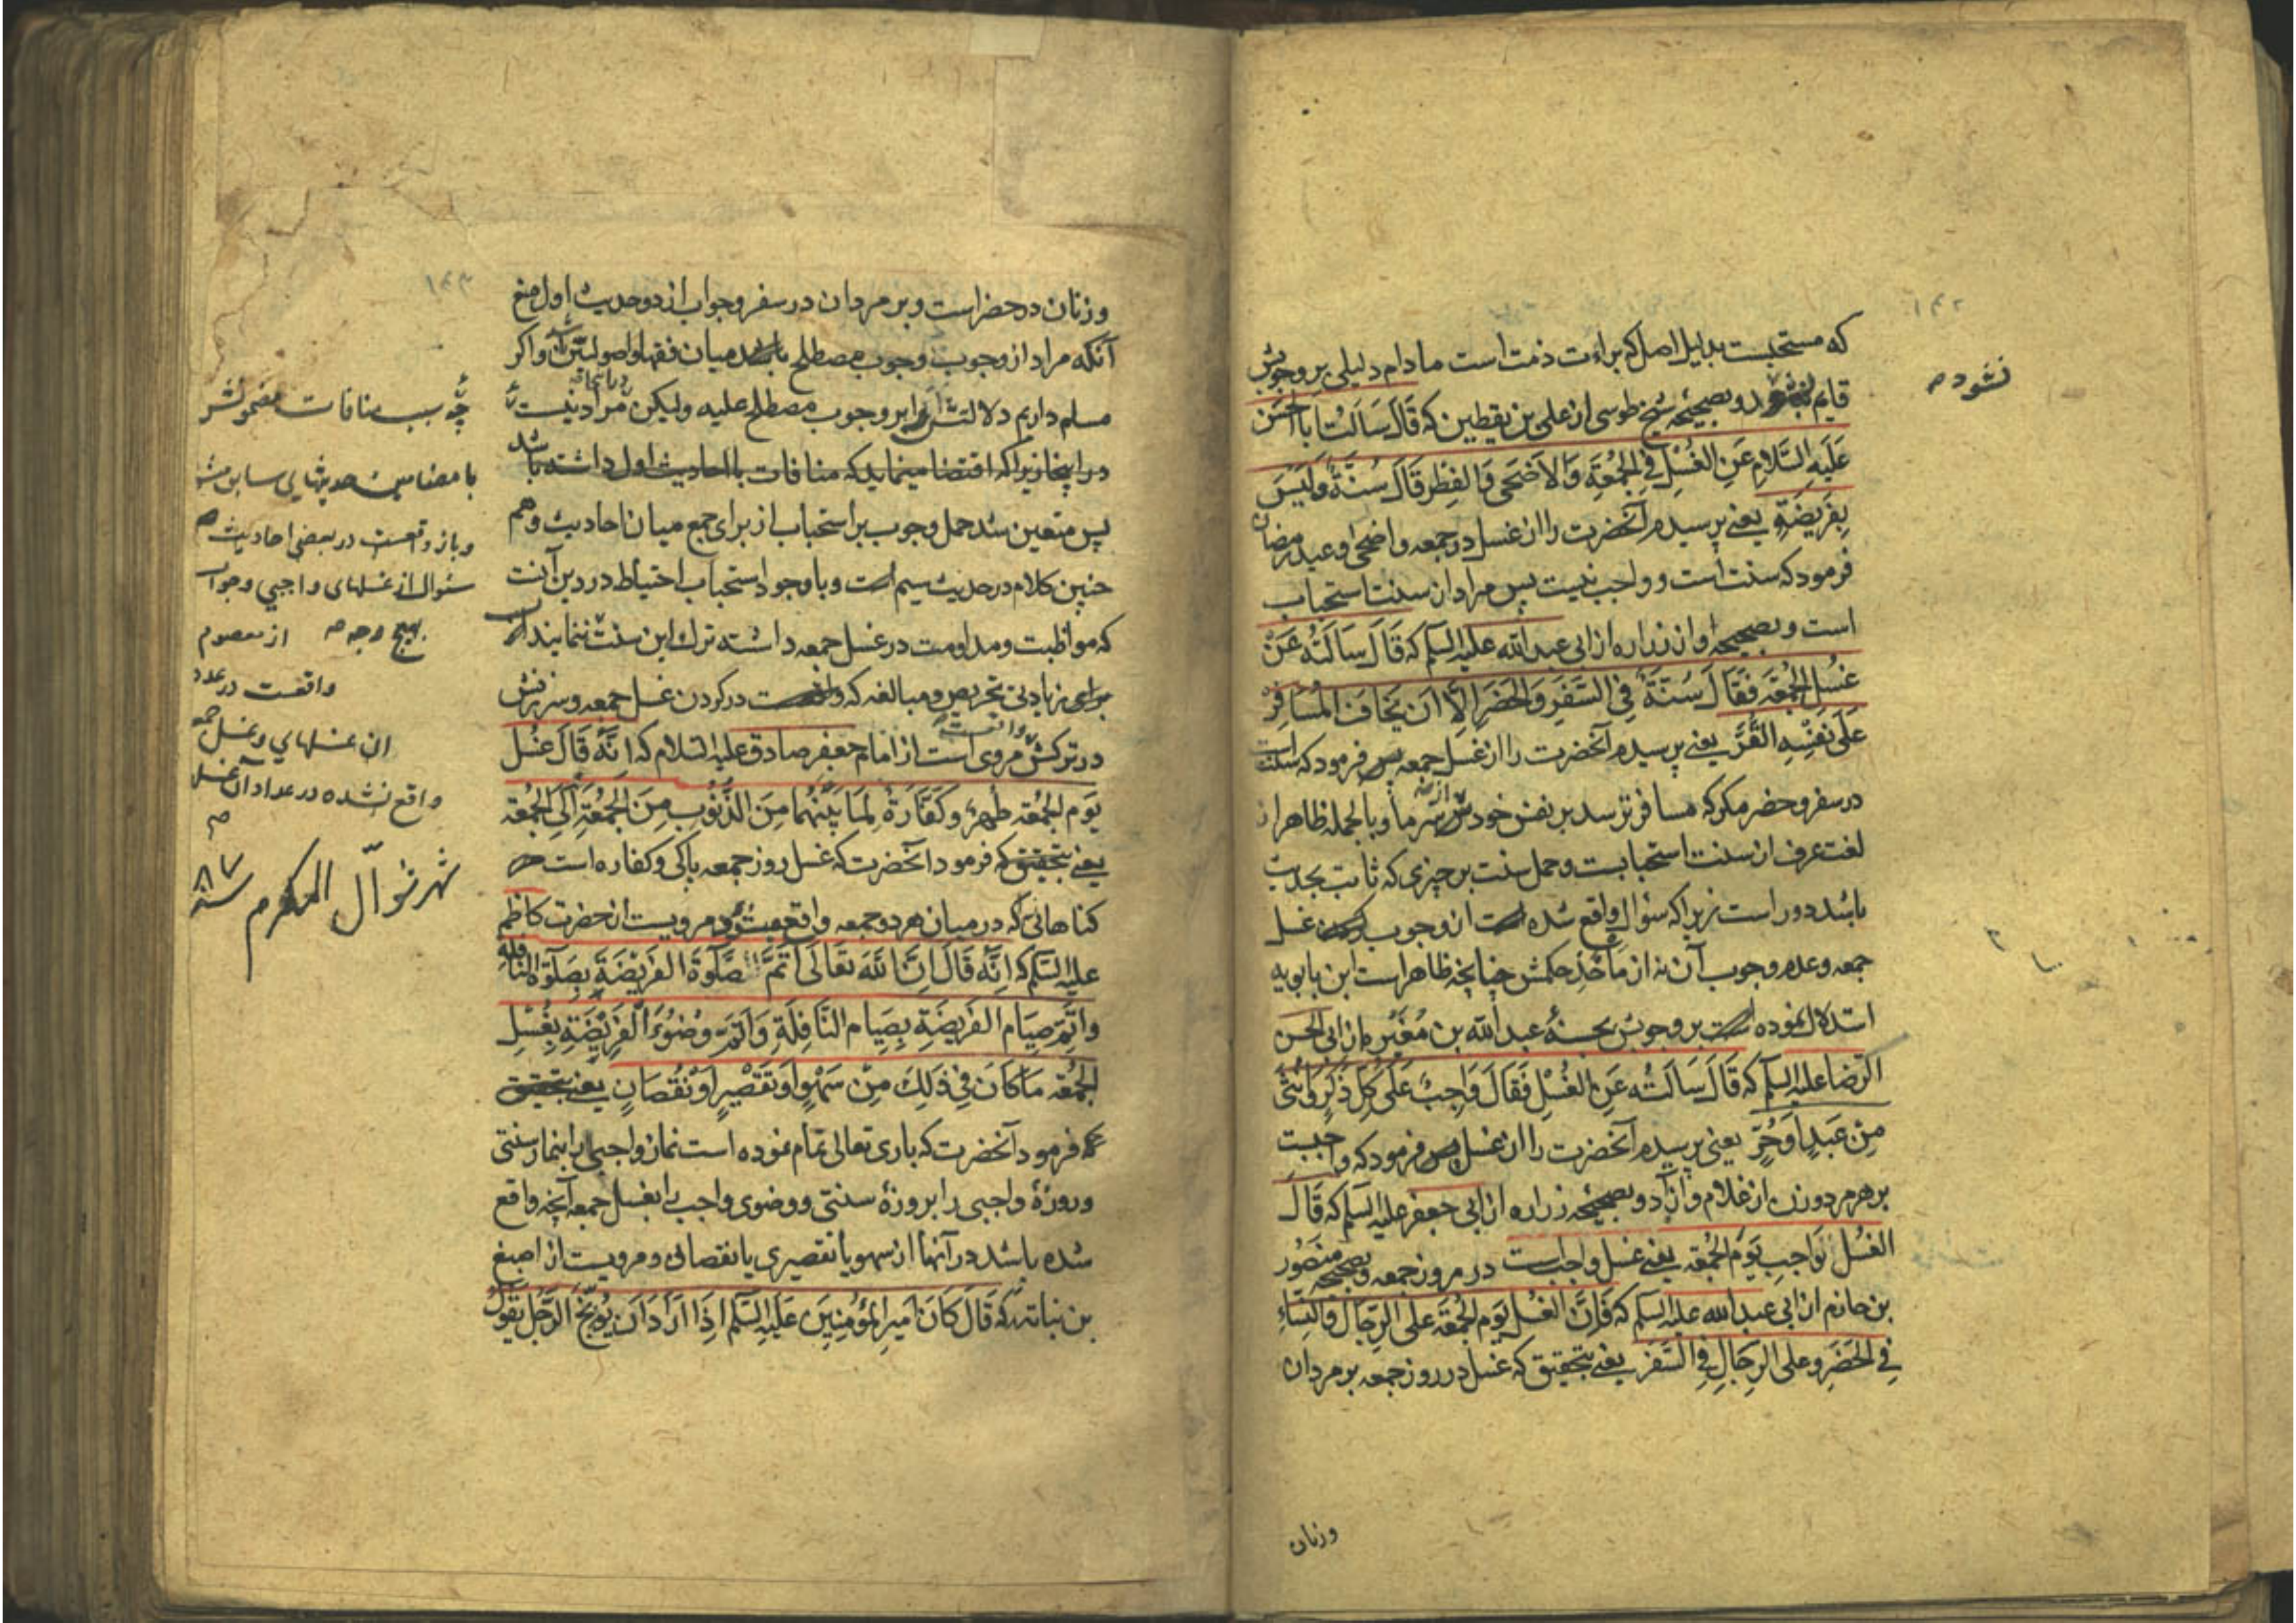 ۱۴۲
که مستحبست بدلیل اصل که براءت ذمت است ما دام دلیلی بر وجوبش
نشود صح
قایم و بصحیحه شیخ طوسی از علی بن یقطین که قَالَ سَاَلْتُ اَبَا الحَسَن
عَلَیهِ السَّلام عَنِ الغُسْلِ فِی الجُمُعَةِ وَالاَضحَی وَالفِطرِ قَالَ سُنَّةٌ وَلَیسَ
بِفَریضَةٍ یعنی پرسیدم آنحضرت را از غسل در جمعه و اضحی و عید رمضان
فرمود که سنت است و واجب نیست پس مراد از سنت استحباب
است و بصحیحه او از زراره از ابی عبد الله علیه السلم که قَالَ سَاَلتُه عَنْ
غسْلِ الجُمُعَة فَقَالَ سُنَّةٌ فی السَّفَرِ وَالحَضَرِ اِلَّا اَن یَخَافَ المُسَافِرُ
عَلَی نَفْسِهِ القُرَّ یعنی پرسیدم آنحضرت را از غسل جمعه پس فرمود که سنت است
در سفر و حضر مکر که مسافر ترسد بر نفس خودش از سرما و بالجمله ظاهر از
لغت عرف از سنت استحبابست و حمل سنت بر چیزی که ثابت بحدیث
باشد دور است زیرا که سؤال واقع شده است از وجوب غسل
جمعه و عدم وجوب آن نه از مأخذ حکمش چنانچه ظاهر است ابن بابویه
استدلال نموده است بر وجوبش بحسنهٔ عبد الله بن مُغَیْره از ابی الحسن
الرضا علیه السلم که قَالَ سَاَلتُه عَنِ الغُسْلِ فَقَالَ وَاجِبٌ عَلَی کُلِّ ذَکَرٍ وَاُنثَی
مِنْ عَبدٍ اَوحُرٍّ یعنی پرسیدم آنحضرت را از غسل پس فرمود که واجبست
بر هر مرد و زن از غلام و آزاد و بصحیحه زراره از ابی جعفر علیه السلم که قَالَ
الغُسْل وَاجِب یَومَ الجُمُعَة یعنی غسل واجبست در روز جمعه و بصحیحه منصور
بن حازم از ابی عبد الله علیه السلم که قَالَ الغُسْل یَوم الجُمُعَة عَلَی الرِجَال وَالنِّسَاءِ
فِی الحَضَرِ وَعلی الرِجَالِ فِی السَّفَر یعنی بتحقیق که غسل در روز جمعه بر مردان
وزنان
۱۴۳
وزنان در حضر است و بر مردان در سفر و جواب از دو حدیث اول منع
آنکه مراد از وجوب وجوب مصطلح باشد میان فقها و اصولیین و اکر
مسلم داریم دلالتش را بر وجوب مصطلح علیه ولیکن مراد نیست
در اینجا زیرا که اقتضا مینماید که منافات با احادیث اول داشته باشد
پس متعین شد حمل وجوب بر استحباب از برای جمع میان احادیث و هم
چنین کلام در حدیث سیم است و باوجود استحباب احتیاط در دین آنست
که مواظبت و مداومت در غسل جمعه داشته ترک این سنت ننمایند
برای زیادتی تحریص و مبالغه که واقعست در کردن غسل جمعه و سرزنش
در ترکش مروی است از امام جعفر صادق علیه السلام که انَّهُ قَالَ غُسْل
یَوم الجُمُعَة طُهرٌ وکَفَّارَةٌ لِمَا بَیْنَهُما مِنَ الذُّنُوبِ مِنَ الجُمُعَةِ اِلَی الجُمُعَة
یعنی بتحقیق که فرمود آنحضرت که غسل روز جمعه پاکی و کفاره است
کناهانی که در میان هر دو جمعه واقع میشود و مرویست از حضرت کاظم
علیه السلم که انَّهُ قَالَ اِنَّ اللهَ تَعَالَی اَتَمَّ صَلوةَ الفَریْضَةِ بِصَلوةِ النَّافِلَةِ
واَتَمَّ صِیَام الفَریضَةِ بِصِیَام النَّافِلَةِ وَاَتَمَّ وُضُوءَ الفَریْضَةِ بِغُسْلِ
الجُمُعَة مَا کَانَ فِی ذَلِکَ مِنْ سَهْوٍ اَوتَقْصِیرٍ اَونُقْصَانٍ یعنی بتحقیق
که فرمود آنحضرت که باری تعالی تمام نموده است نماز واجبی را بنماز سنتی
و روزهٔ واجبی را بروزهٔ سنتی و وضوی واجب را بغسل جمعه آنچه واقع
شده باشد در آنها از سهو یا تقصیری یا نقصانی و مرویست از اصبغ
بن نباته که قَالَ کَانَ اَمیرُ المُؤمِنِینَ عَلَیهِ السَّلم اِذَا اَرَادَ اَن یُوَبِّخَ الرَّجُل یَقُولُ
چه سبب منافات مضمونش
با مضامین حدیثهای سابق
و باز واقعست در بعضی احادیث
سئوال از غسلهای واجبی و جواب
از معصوم بهیچ وجه
واقعست در عدد
ان غسلهای و غسل جمعه
واقع نشده در عداد آن غسل
شهر شوال المکرم سنه ۸۷